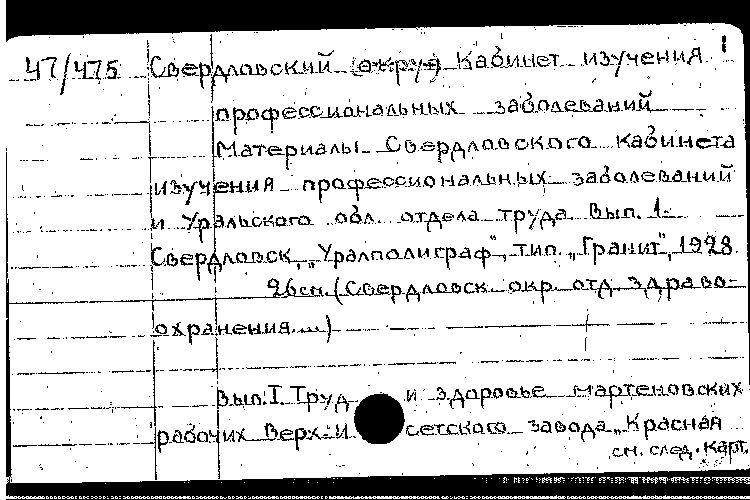 47/475 Свердловский (округ) Кабинет изучения 1
профессиональных заболеваний
Материалы Свердловского кабинета
изучения профессиональных заболеваний
и Уральского обл. отдела труда. Вып. 1.
Свердловск, „Уралполиграф", тип. „Гранит", 1928
26см. (Свердловск. окр. отд. здраво-
охранения....)
Вып. I. Труд и здоровье мартеновских
рабочих Верх-И сетского завода „Красная
см. след. карт.